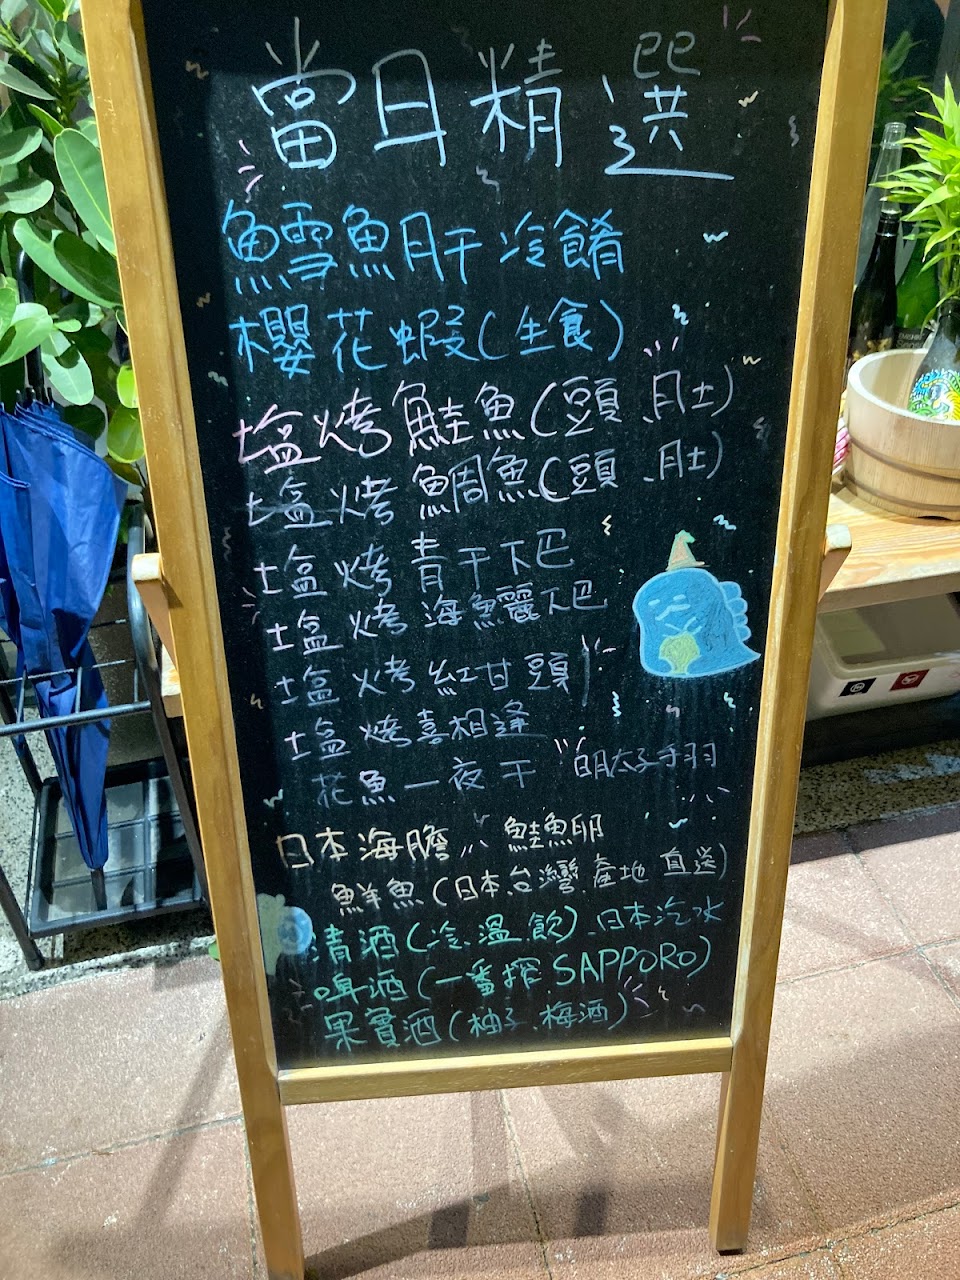 當日精選
鱈魚肝冷餚
櫻花蝦(生食)
塩烤鮭魚(頭、肚)
塩烤鯛魚(頭、肚)
塩烤青干下巴
塩烤海鱺下巴
塩烤紅甘頭
塩烤喜相逢
花魚一夜干 明太子手羽
日本海膽 鮭魚卵
鮮魚(日本台灣產地直送)
清酒(冷、溫飲)、日本汽水
啤酒(一番搾、SAPPORO)
果實酒(柚子、梅酒)